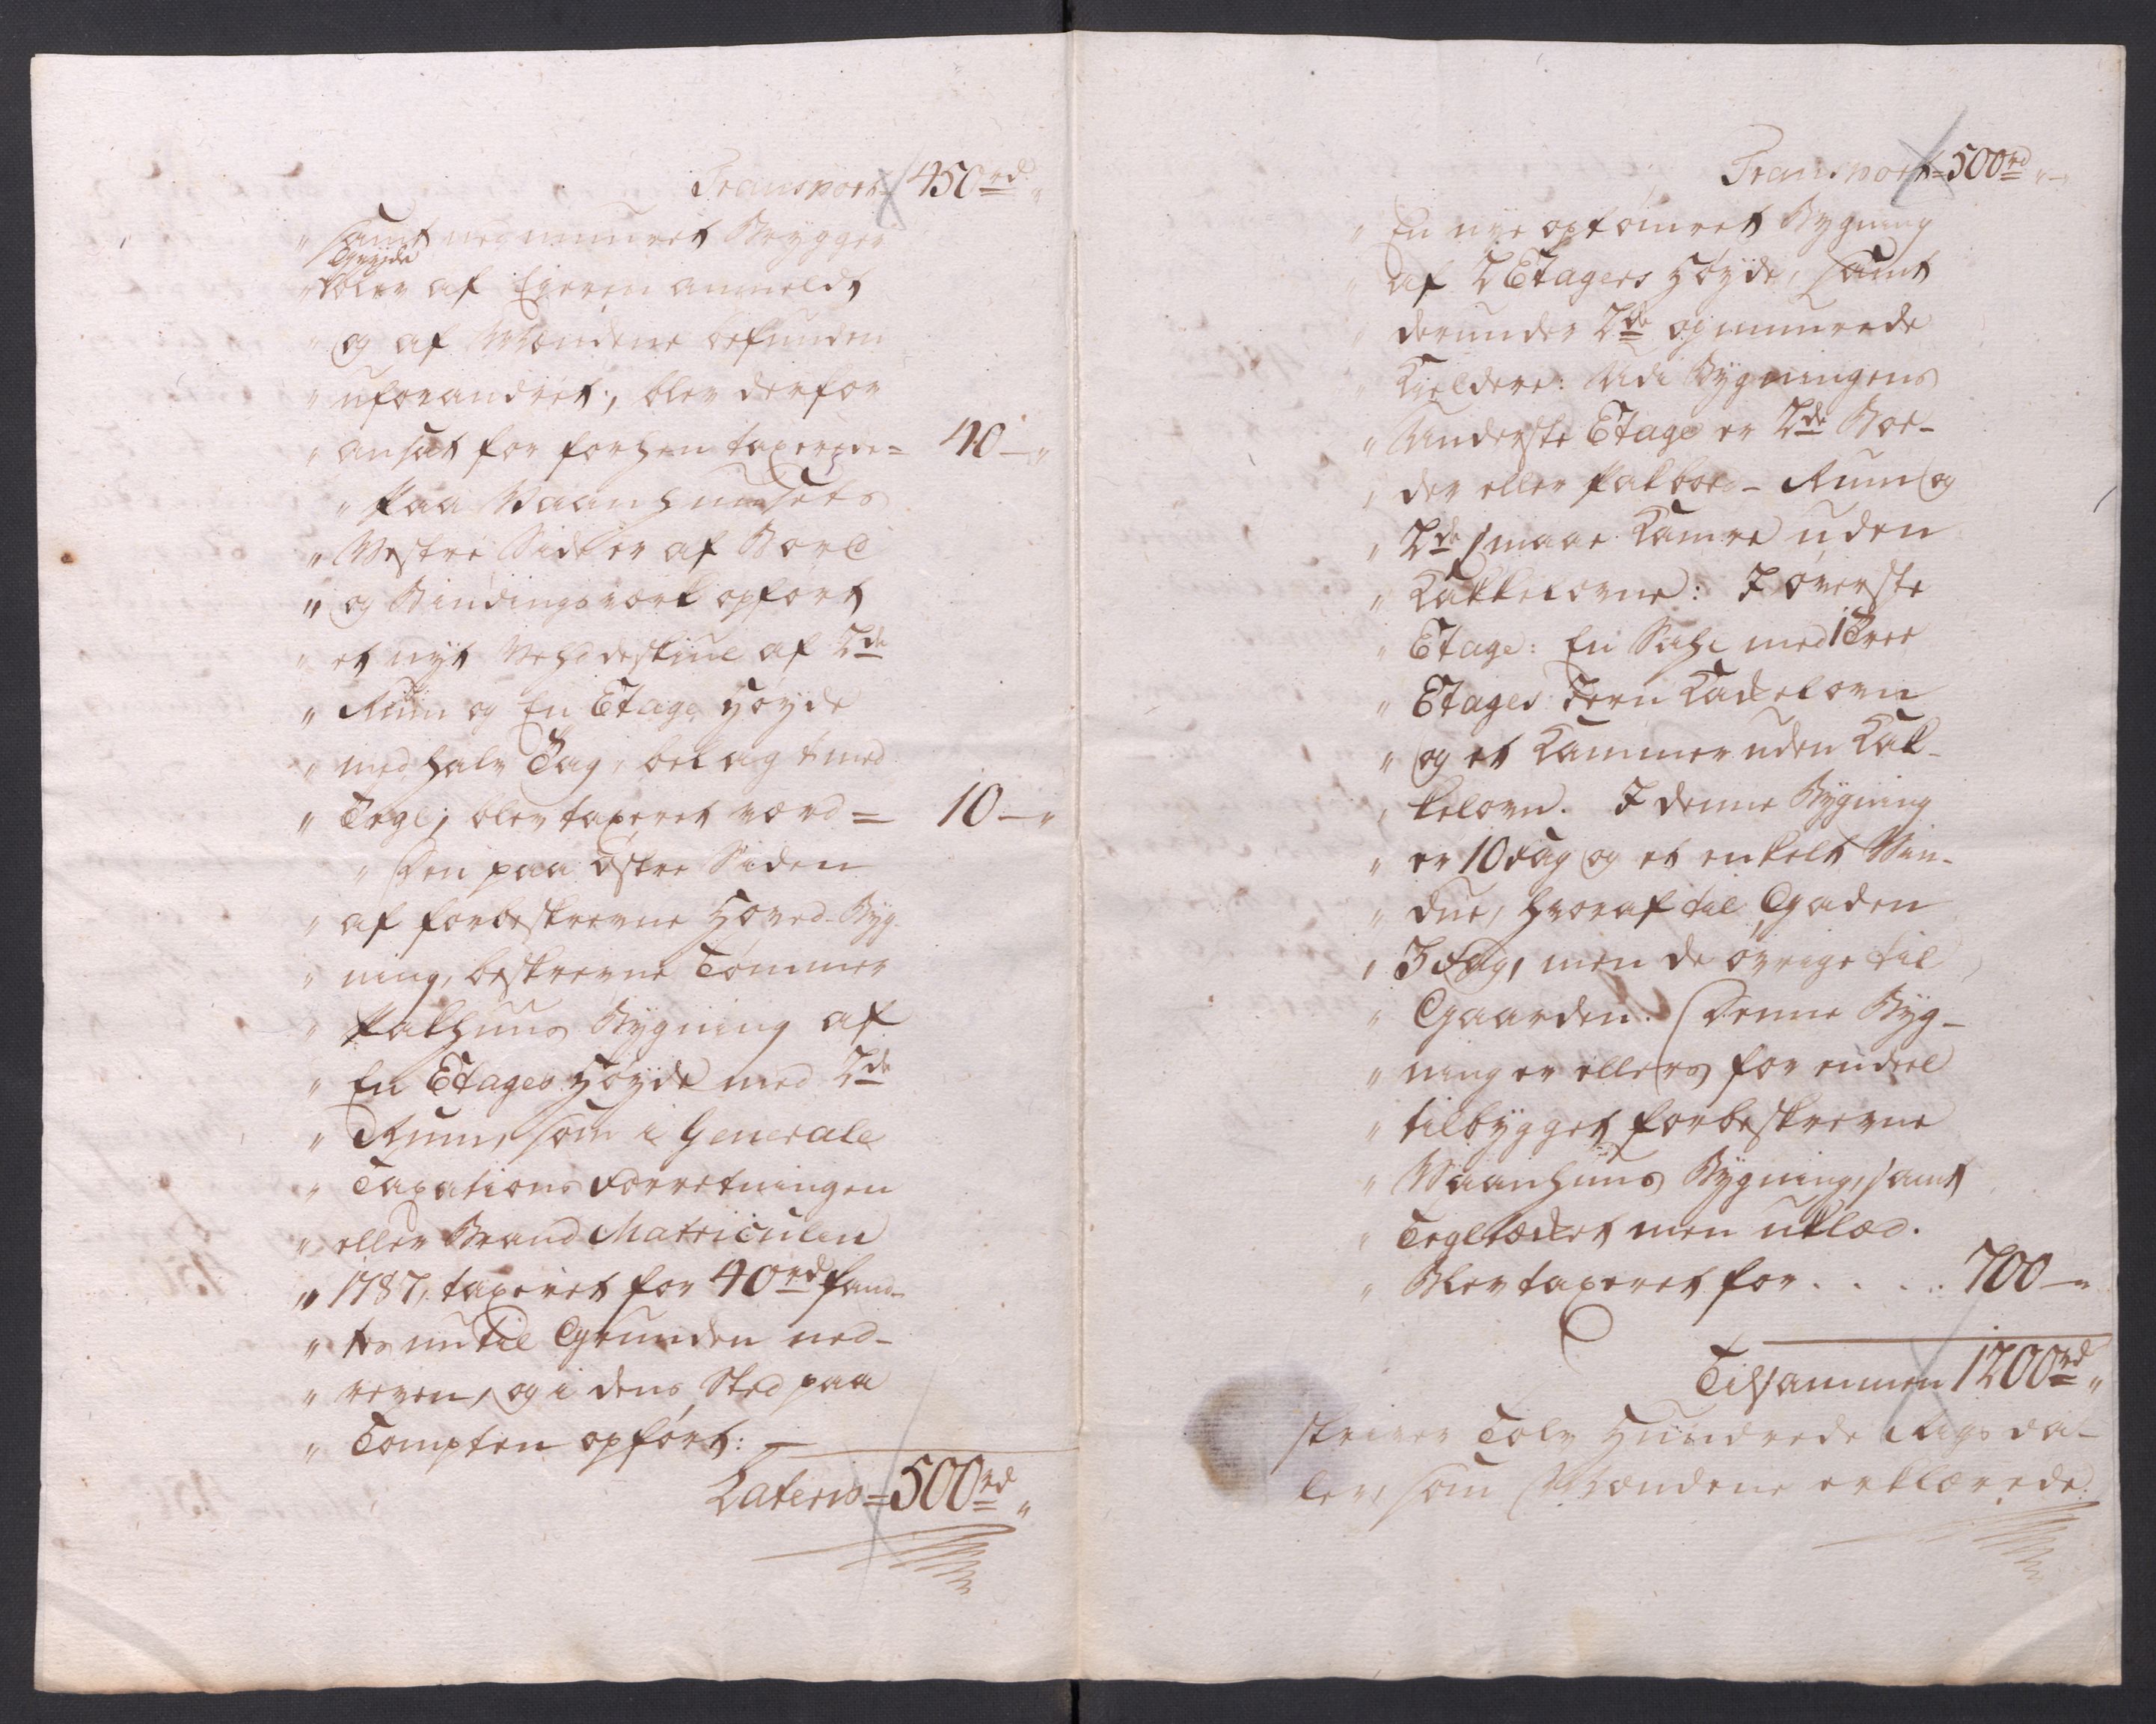 Transport 450rd "
" samt muret Brygger
Gryde
" blev af Eyeren anmeldt
" og af Mændene befunden
" uforandret, blev derfor
" ansat for forhen taxerede = 40 - "
" Paa Vaanhusets
" Westre Side er af Bord
" og Bindingsverk opført
" et nyt Vedeskiul af 2de
" Rum og En Etage Høyde
" med halv Tag, belagt med
" Tegl; blev taxeret værd = 10 - "
" Den paa Østre Siden
" af forbeskrevne Hoved-Byg-
" ning, beskrevne Tømmer
" Pakhuus Bygning af
" En Etages Høyde med 2de
" Rum, som i Generale
" Taxations Forretningen
" eller Brand Matriculen
" 1787, taxeret for 40rd fand-
" tes nu til Grunden ned-
" reven, og i dens Sted paa
" Tompten opført: -
Lateris = 500rd "
Transport = 500rd " - "
" En nye optømret Bygning
" af 2 Etagers Høyde, samt
" derunder 2de opmurede
" Kieldere: Udi Bygningens
" Underste Etage er 2de Boe-
" der eller Pakboe- Rum og
" 2de smaae Kamre uden
" Kakkelovne: I øverste
" Etage: En Sahl med 1 Tree
" Etages Jern Kackelovn
" og et Kammer uden Kak-
" kelovn. I denne Bygning
" er 10 Fag og et enkelt Vin-
" due, hvoraf til Gaden
" 3 Fag, men de øvrige til
" Gaarden. Denne Byg-
" ning er ellers for endeel
" tilbygget forbeskrevne
" Vaanhuus Bygning, samt
" Tegltækket men uklæd.
" Blev taxeret for . . . . . 700 - "
Tilsammen 1200rd "
skriver Tolv Hundrede Rigsda-
ler, som Mændene erklærede